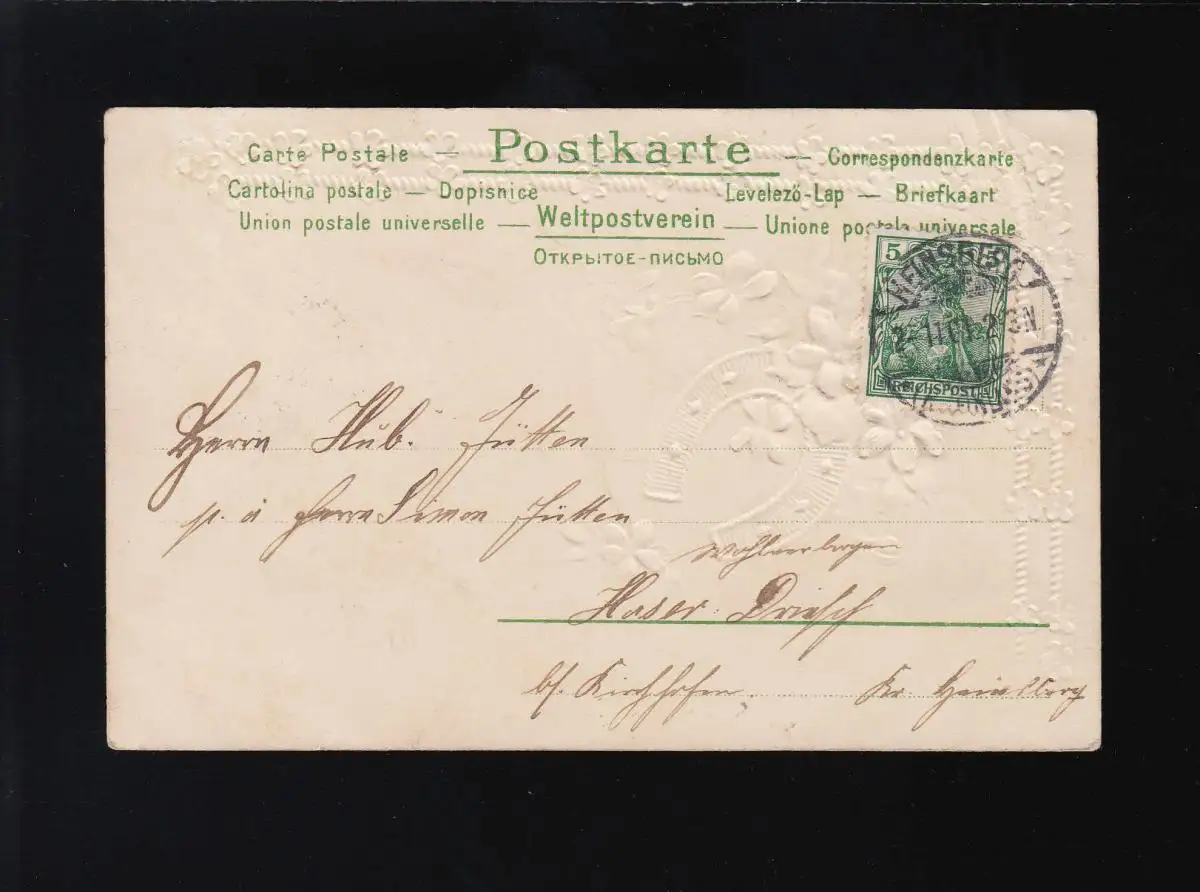 Carte Postale — Postkarte — Correspondenzkarte
Cartolina postale — Dopisnice Levelező-Lap — Briefkaart
Union postale universelle — Weltpostverein — Unione postale universale
Открытое-письмо
5 5
HEINSBERG
2.1.01.2-3N
REICHSPOST
Herrn Hub. Jütten
p. a Herrn Simon Jütten
Haser Driesch
bf. Kirchhofen Kr Heinsberg